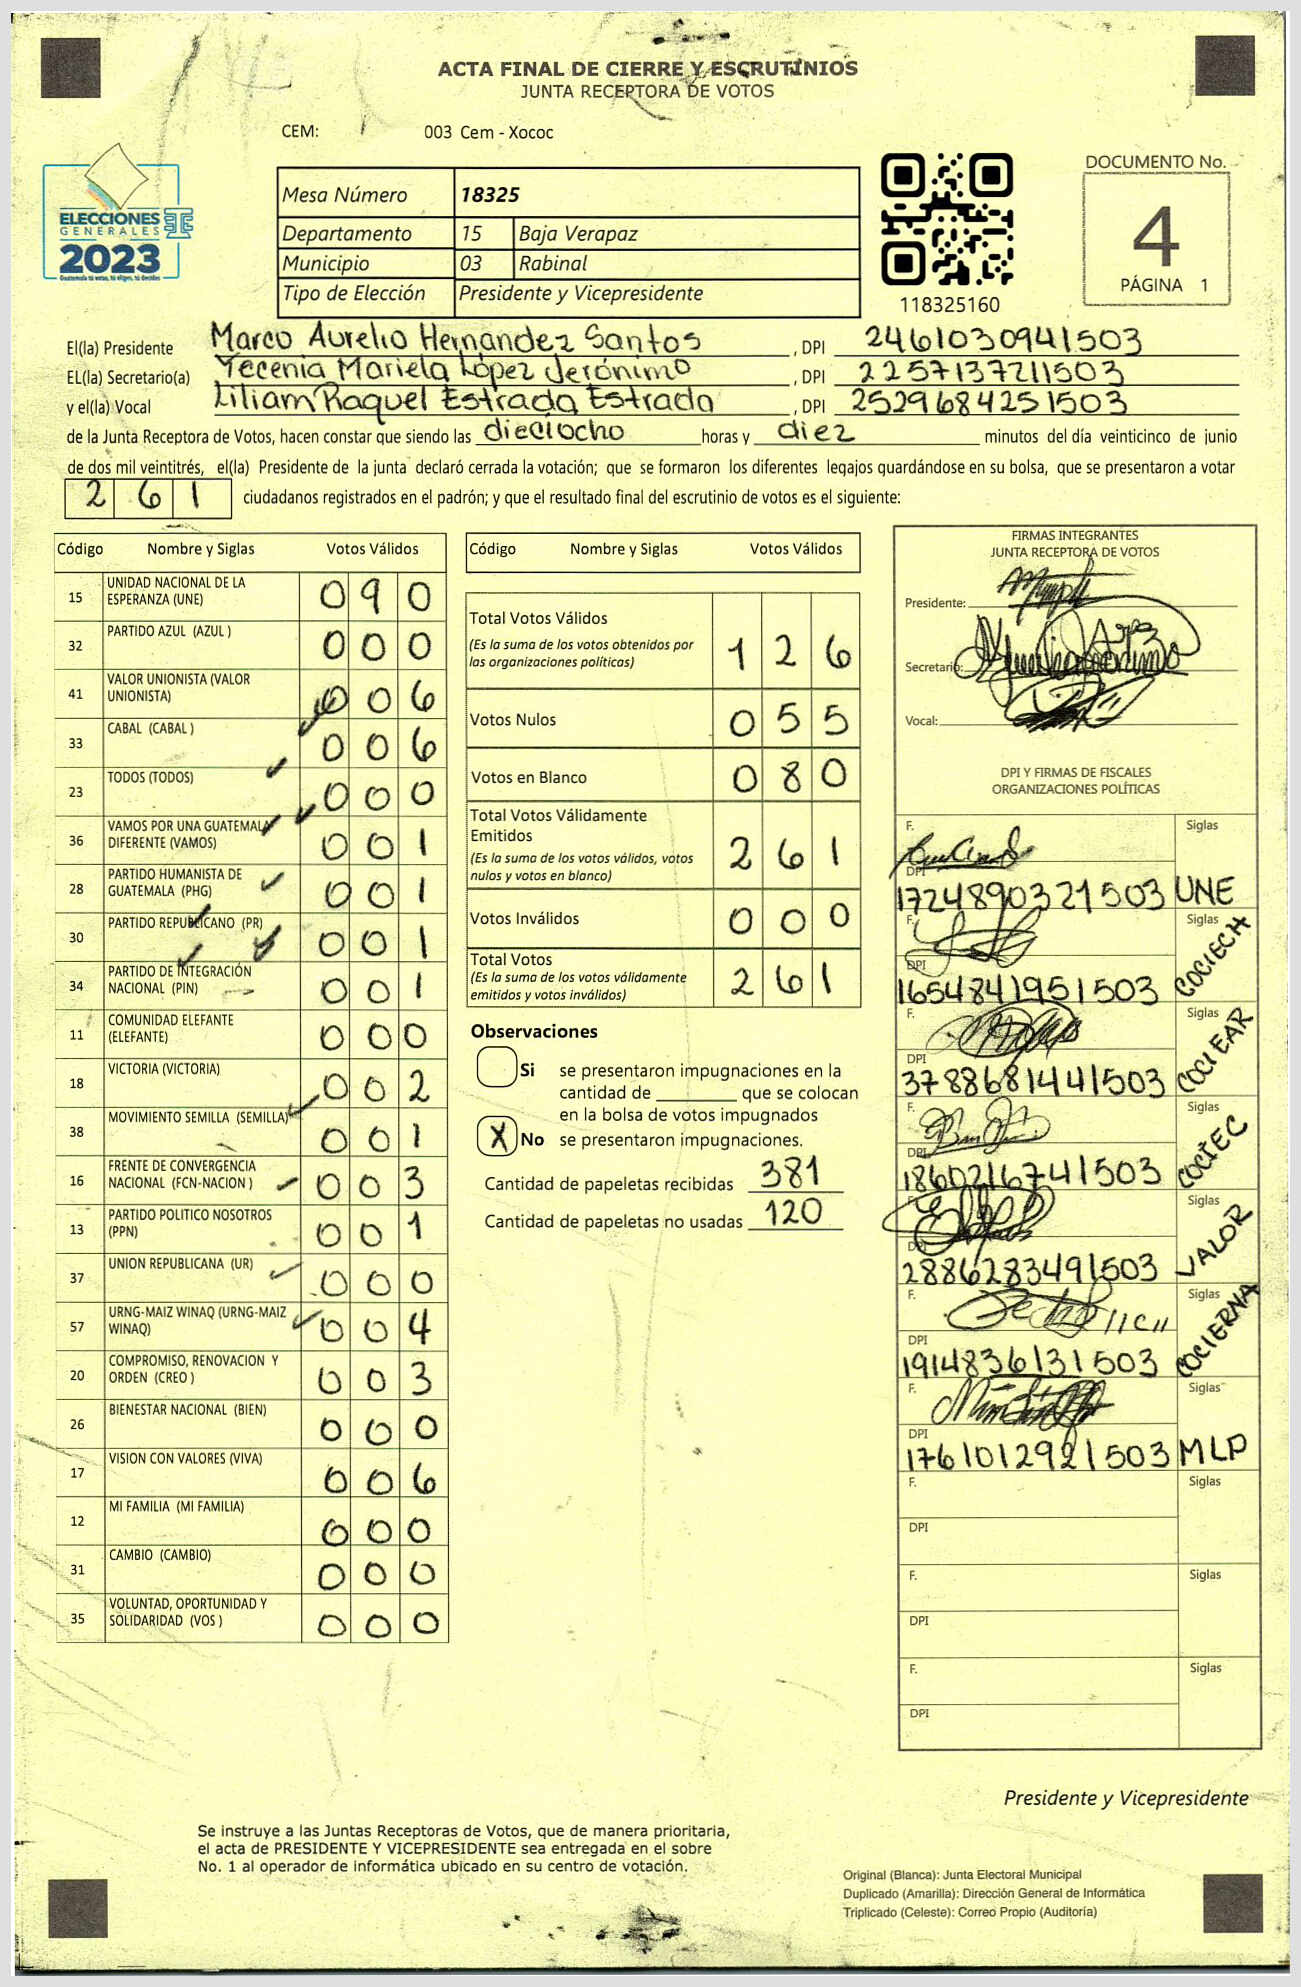 ACTA FINAL DE CIERRE Y ESCRUTINIOS
JUNTA RECEPTORA DE VOTOS
CEM: 003 Cem - Xococ
ELECCIONES
GENERALES
2023
Guatemala tú votas, tú eliges, tú decides
Mesa Número 18325
Departamento 15 Baja Verapaz
Municipio 03 Rabinal
Tipo de Elección Presidente y Vicepresidente
118325160
DOCUMENTO No.
4
PÁGINA 1
El(la) Presidente Marco Aurelio Hernández Santos, DPI 2461030941503
EL(la) Secretario(a) Yecenia Mariela López Jerónimo, DPI 2257137211503
y el(la) Vocal Liliam Raquel Estrada Estrada, DPI 2529684251503
de la Junta Receptora de Votos, hacen constar que siendo las dieciocho horas y diez minutos del día veinticinco de junio
de dos mil veintitrés, el(la) Presidente de la junta declaró cerrada la votación; que se formaron los diferentes legajos guardándose en su bolsa, que se presentaron a votar
261 ciudadanos registrados en el padrón; y que el resultado final del escrutinio de votos es el siguiente:
Código Nombre y Siglas Votos Válidos
15 UNIDAD NACIONAL DE LA ESPERANZA (UNE) 090
32 PARTIDO AZUL (AZUL ) 000
41 VALOR UNIONISTA (VALOR UNIONISTA) 006
33 CABAL (CABAL ) 006
23 TODOS (TODOS) 000
36 VAMOS POR UNA GUATEMALA DIFERENTE (VAMOS) 001
28 PARTIDO HUMANISTA DE GUATEMALA (PHG) 001
30 PARTIDO REPUBLICANO (PR) 001
34 PARTIDO DE INTEGRACIÓN NACIONAL (PIN) 001
11 COMUNIDAD ELEFANTE (ELEFANTE) 000
18 VICTORIA (VICTORIA) 002
38 MOVIMIENTO SEMILLA (SEMILLA) 001
16 FRENTE DE CONVERGENCIA NACIONAL (FCN-NACION ) 003
13 PARTIDO POLITICO NOSOTROS (PPN) 001
37 UNION REPUBLICANA (UR) 000
57 URNG-MAIZ WINAQ (URNG-MAIZ WINAQ) 004
20 COMPROMISO, RENOVACION Y ORDEN (CREO ) 003
26 BIENESTAR NACIONAL (BIEN) 000
17 VISION CON VALORES (VIVA) 006
12 MI FAMILIA (MI FAMILIA) 000
31 CAMBIO (CAMBIO) 000
35 VOLUNTAD, OPORTUNIDAD Y SOLIDARIDAD (VOS ) 000
Código Nombre y Siglas Votos Válidos
Total Votos Válidos 126
(Es la suma de los votos obtenidos por
las organizaciones políticas)
Votos Nulos 055
Votos en Blanco 080
Total Votos Válidamente
Emitidos 261
(Es la suma de los votos válidos, votos
nulos y votos en blanco)
Votos Inválidos 000
Total Votos 261
(Es la suma de los votos válidamente
emitidos y votos inválidos)
Observaciones
Si se presentaron impugnaciones en la
cantidad de ________ que se colocan
en la bolsa de votos impugnados
X No se presentaron impugnaciones.
Cantidad de papeletas recibidas 381
Cantidad de papeletas no usadas 120
FIRMAS INTEGRANTES
JUNTA RECEPTORA DE VOTOS
Presidente:
Secretario:
Vocal:
DPI Y FIRMAS DE FISCALES
ORGANIZACIONES POLÍTICAS
F. Siglas
DPI 1724890321503 UNE
F. Siglas
DPI 1654841951503 COCIECH
F. Siglas
DPI 3788681441503 COCIEAR
F. Siglas
DPI 1860216741503 COCIEC
F. Siglas
DPI 2886283491503 VALOR
F. Siglas
DPI 1914836131503 COCIERNA
F. Siglas
DPI 1761012921503 MLP
F. Siglas
DPI
F. Siglas
DPI
F. Siglas
DPI
Presidente y Vicepresidente
Se instruye a las Juntas Receptoras de Votos, que de manera prioritaria,
el acta de PRESIDENTE Y VICEPRESIDENTE sea entregada en el sobre
No. 1 al operador de informática ubicado en su centro de votación.
Original (Blanca): Junta Electoral Municipal
Duplicado (Amarilla): Dirección General de Informática
Triplicado (Celeste): Correo Propio (Auditoría)